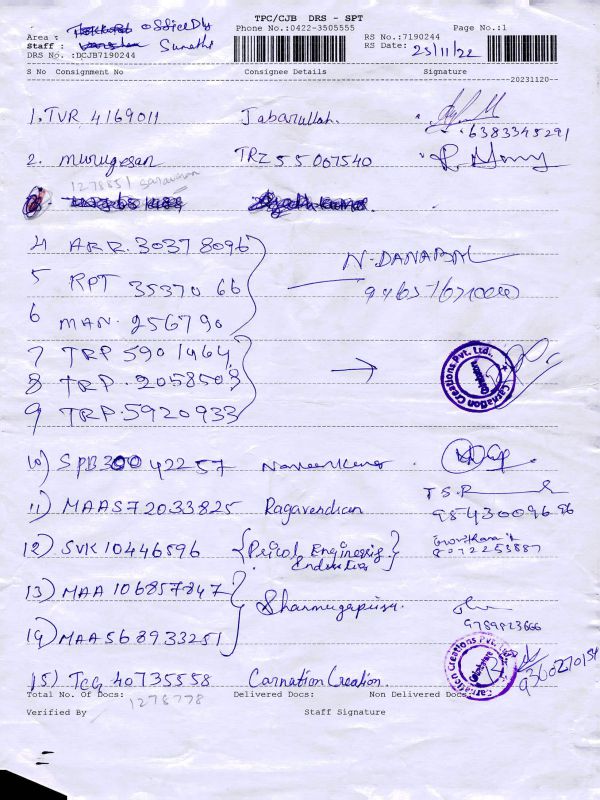 TPC/CJB DRS - SPT
Phone No.:0422-3505555 Page No.:1
Area : officeDly
Staff : Sumathi
RS No.:7190244
RS Date: 23/11/22
DRS No. :DCJB7190244
S No Consignment No Consignee Details Signature
20231120
1. TVR 4169011 Jabarullah.
6383345291
2. Murugesan TRZ 55007540
1278851 Saravanan
4 ARR. 30378096
N-DANAPAL
5 RPT 3537066
6 MAN. 256790
7 TRP 5901464
8 TRP. 2058503
9 TRP. 5920933
Carnation Creations Pvt. Ltd.
10) SPB300 42257 Naveenkumar
11) MAAS72033825 Ragavendran T S.R
12) SVK10446596 { Pricol Engineering Industries }
8072253887
13) MAA 106857847
Shanmugapriya.
9789823666
14) MAAS68933251
Carnation Creations Pvt. Ltd.
15) TCG 40735558 Carnation Creation. 9360270154
Total No. Of Docs: Delivered Docs: Non Delivered Docs:
1278778
Verified By Staff Signature